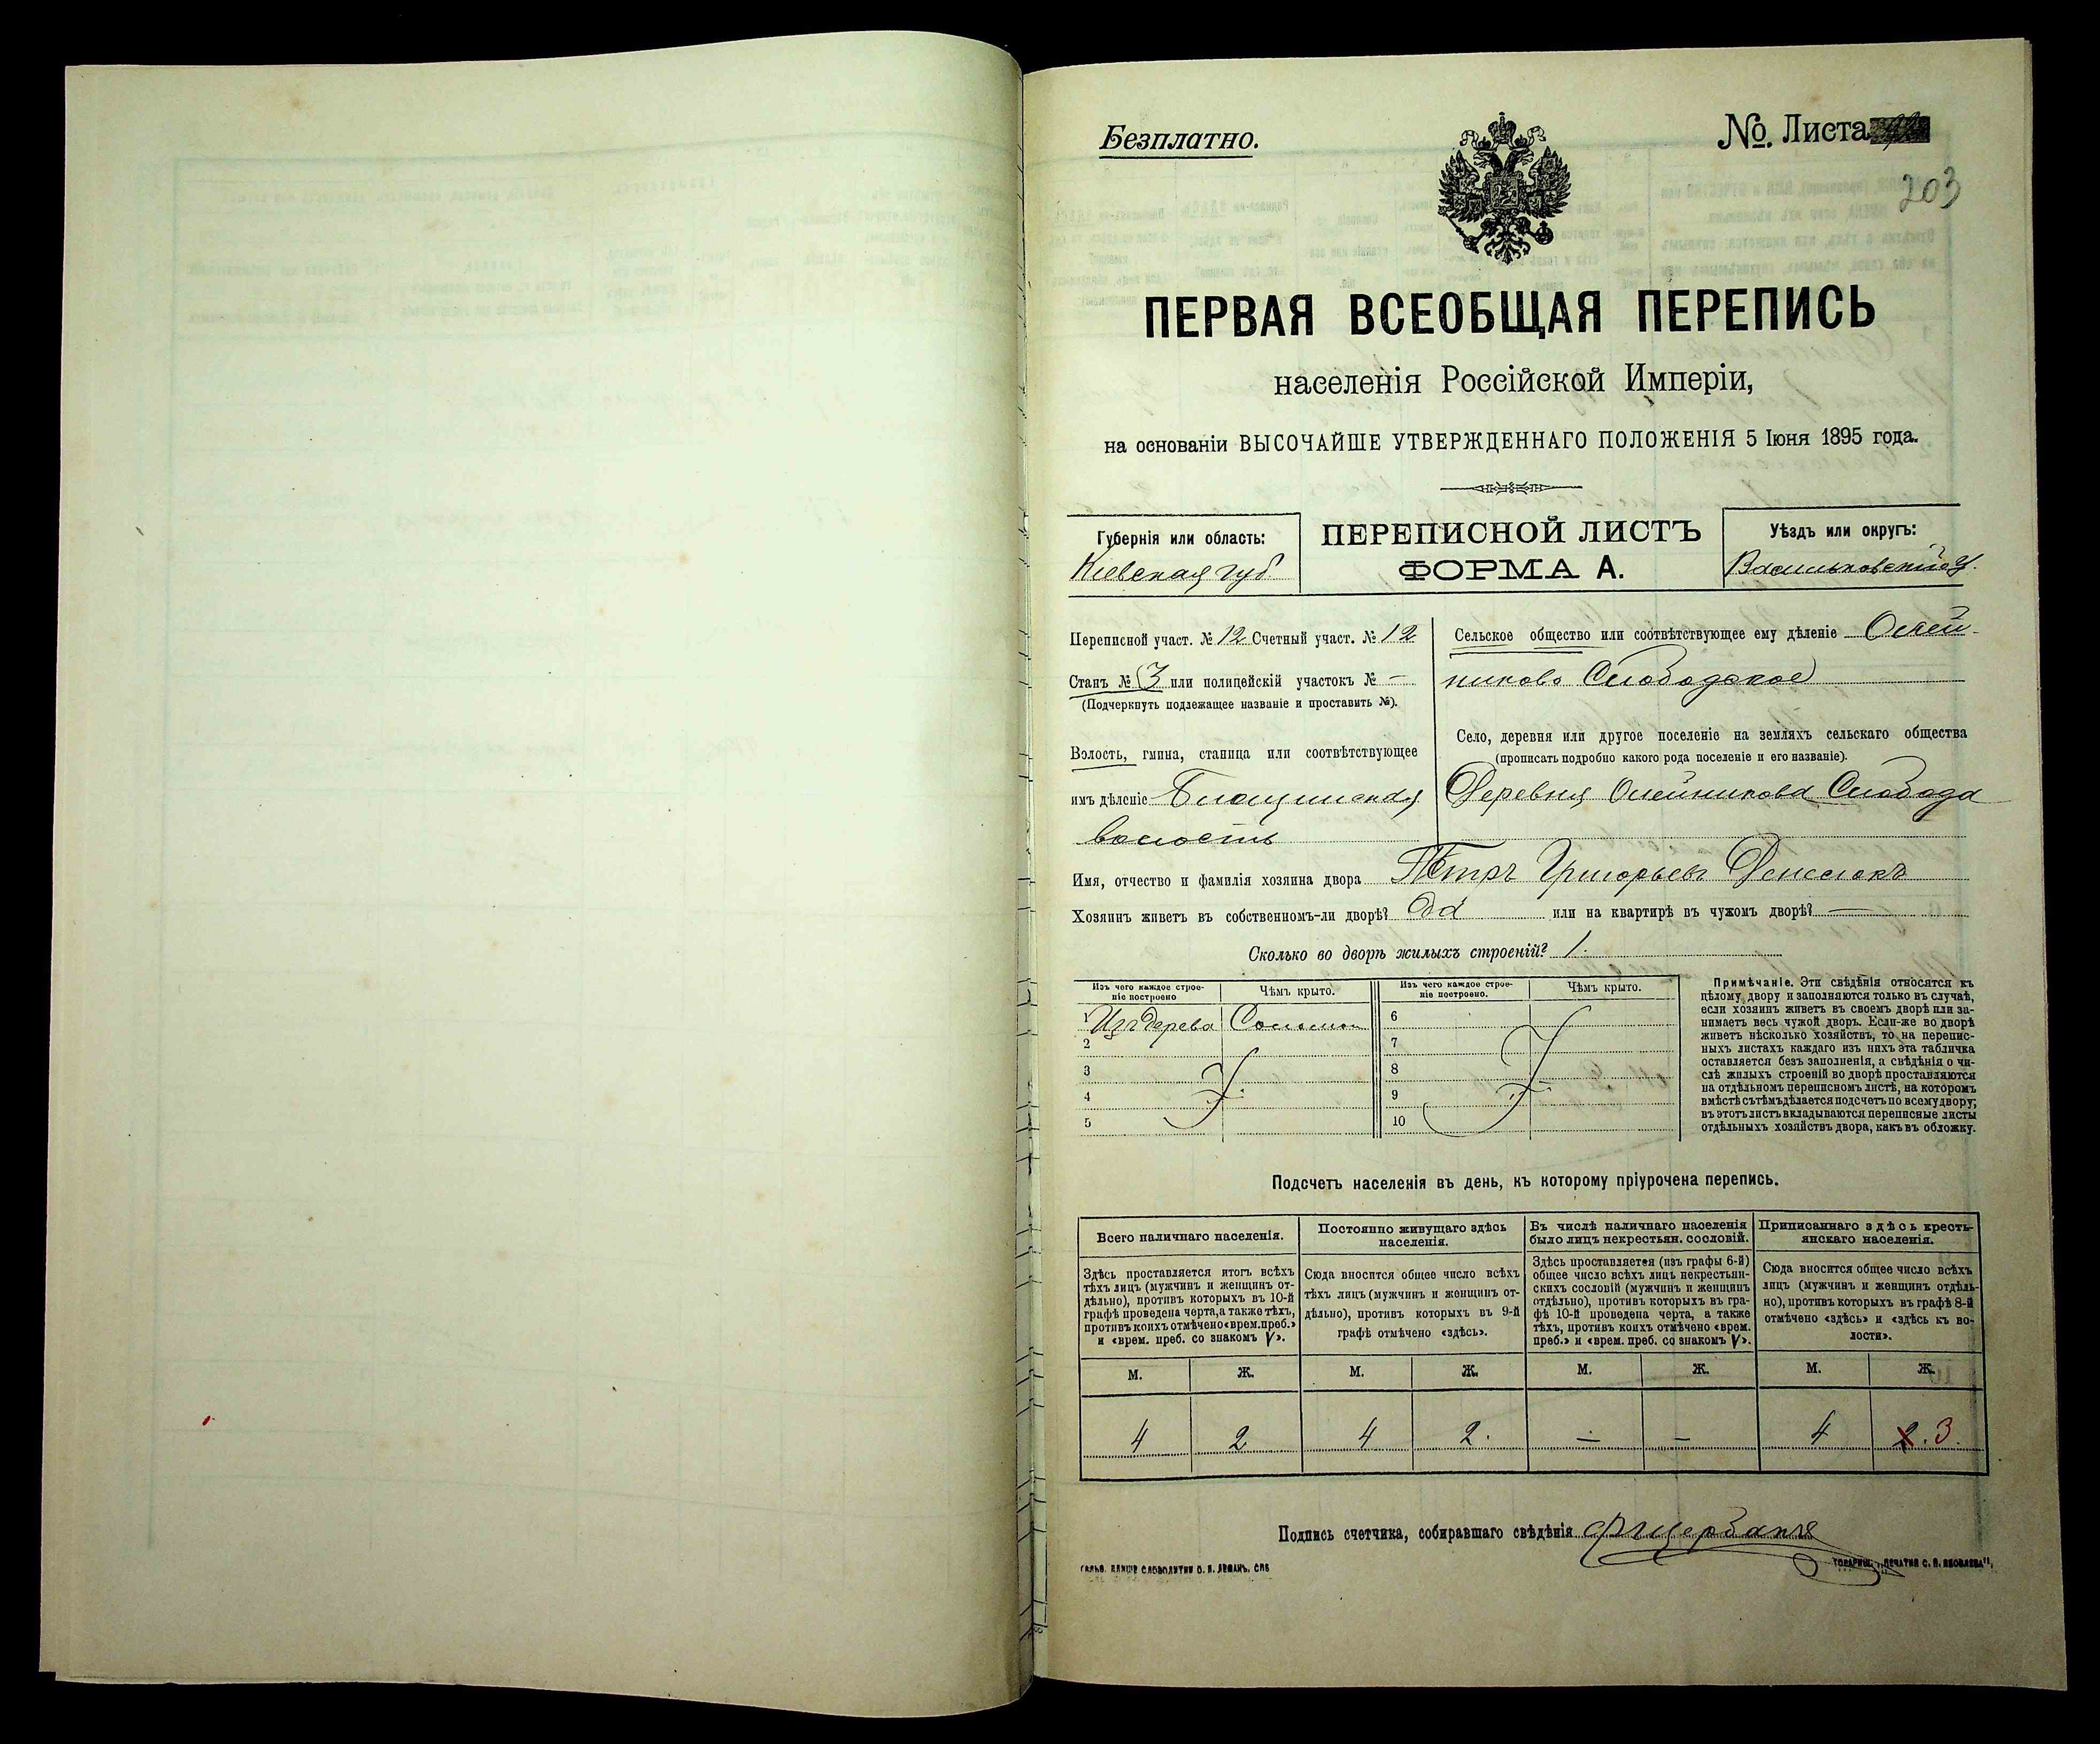 Безплатно.
№. Листа
203
ПЕРВАЯ ВСЕОБЩАЯ ПЕРЕПИСЬ
населенія Россійской Имперіи,
на основаніи ВЫСОЧАЙШЕ УТВЕРЖДЕННАГО ПОЛОЖЕНІЯ 5 Іюня 1895 года.
Губернія или область:
Кіевская губ
ПЕРЕПИСНОЙ ЛИСТЪ
ФОРМА А.
Уѣздъ или округъ:
Васильковскій у.
Переписной участ. № 12 Счетный участ. № 12
Станъ № 3 или полицейскій участокъ № —
(Подчеркнуть подлежащее названіе и проставить №).
Волость, гмина, станица или соотвѣтствующее
имъ дѣленіе
волость
Сельское общество или соотвѣтствующее ему дѣленіе Олей-
никово Слободское
Село, деревня или другое поселеніе на земляхъ сельскаго общества
(прописать подробно какого рода поселеніе и его названіе).
Деревня Олейникова Слобода
Имя, отчество и фамилія хозяина двора Петръ Григорьевъ Денисюкъ
Хозяинъ живетъ въ собственномъ-ли дворѣ? Да или на квартирѣ въ чужомъ дворѣ? —
Сколько во дворѣ жилыхъ строеній? 1.
Изъ чего каждое строе-
ніе построено
Чѣмъ крыто.
Изъ чего каждое строе-
ніе построено.
Чѣмъ крыто.
1 Изъ дерева Соломой
2
3
4
5
6
7
8
9
10
Примѣчаніе. Эти свѣдѣнія относятся къ
цѣлому двору и заполняются только въ случаѣ,
если хозяинъ живетъ въ своемъ дворѣ или за-
нимаетъ весь чужой дворъ. Если-же во дворѣ
живетъ нѣсколько хозяйствъ, то на перепис-
ныхъ листахъ каждаго изъ нихъ эта табличка
оставляется безъ заполненія, а свѣдѣнія о чи-
слѣ жилыхъ строеній во дворѣ проставляются
на отдѣльномъ переписномъ листѣ, на которомъ
вмѣстѣ съ тѣмъ дѣлается подсчетъ по всему двору;
въ этотъ листъ вкладываются переписные листы
отдѣльныхъ хозяйствъ двора, какъ въ обложку.
Подсчетъ населенія въ день, къ которому пріурочена перепись.
Всего наличнаго населенія.
Здѣсь проставляется итогъ всѣхъ
тѣхъ лицъ (мужчинъ и женщинъ от-
дѣльно), противъ которыхъ въ 10-й
графѣ проведена черта, а также тѣхъ,
противъ коихъ отмѣчено «врем. преб.»
и «врем. преб. со знакомъ V».
Постоянно живущаго здѣсь
населенія.
Сюда вносится общее число всѣхъ
тѣхъ лицъ (мужчинъ и женщинъ от-
дѣльно), противъ которыхъ въ 9-й
графѣ отмѣчено «здѣсь».
Въ числѣ наличнаго населенія
было лицъ некрестьян. сословій.
Здѣсь проставляется (изъ графы 6-й)
общее число всѣхъ лицъ некрестьян-
скихъ сословій (мужчинъ и женщинъ
отдѣльно), противъ которыхъ въ гра-
фѣ 10-й проведена черта, а также
тѣхъ, противъ коихъ отмѣчено «врем.
преб.» и «врем. преб. со знакомъ V».
Приписаннаго здѣсь кресть-
янскаго населенія.
Сюда вносится общее число всѣхъ
лицъ (мужчинъ и женщинъ отдѣль-
но), противъ которыхъ въ графѣ 8-й
отмѣчено «здѣсь» и «здѣсь къ во-
лости».
М. Ж. М. Ж. М. Ж. М. Ж.
4 2 4 2. — — 4 2. 3.
Подпись счетчика, собиравшаго свѣдѣнія